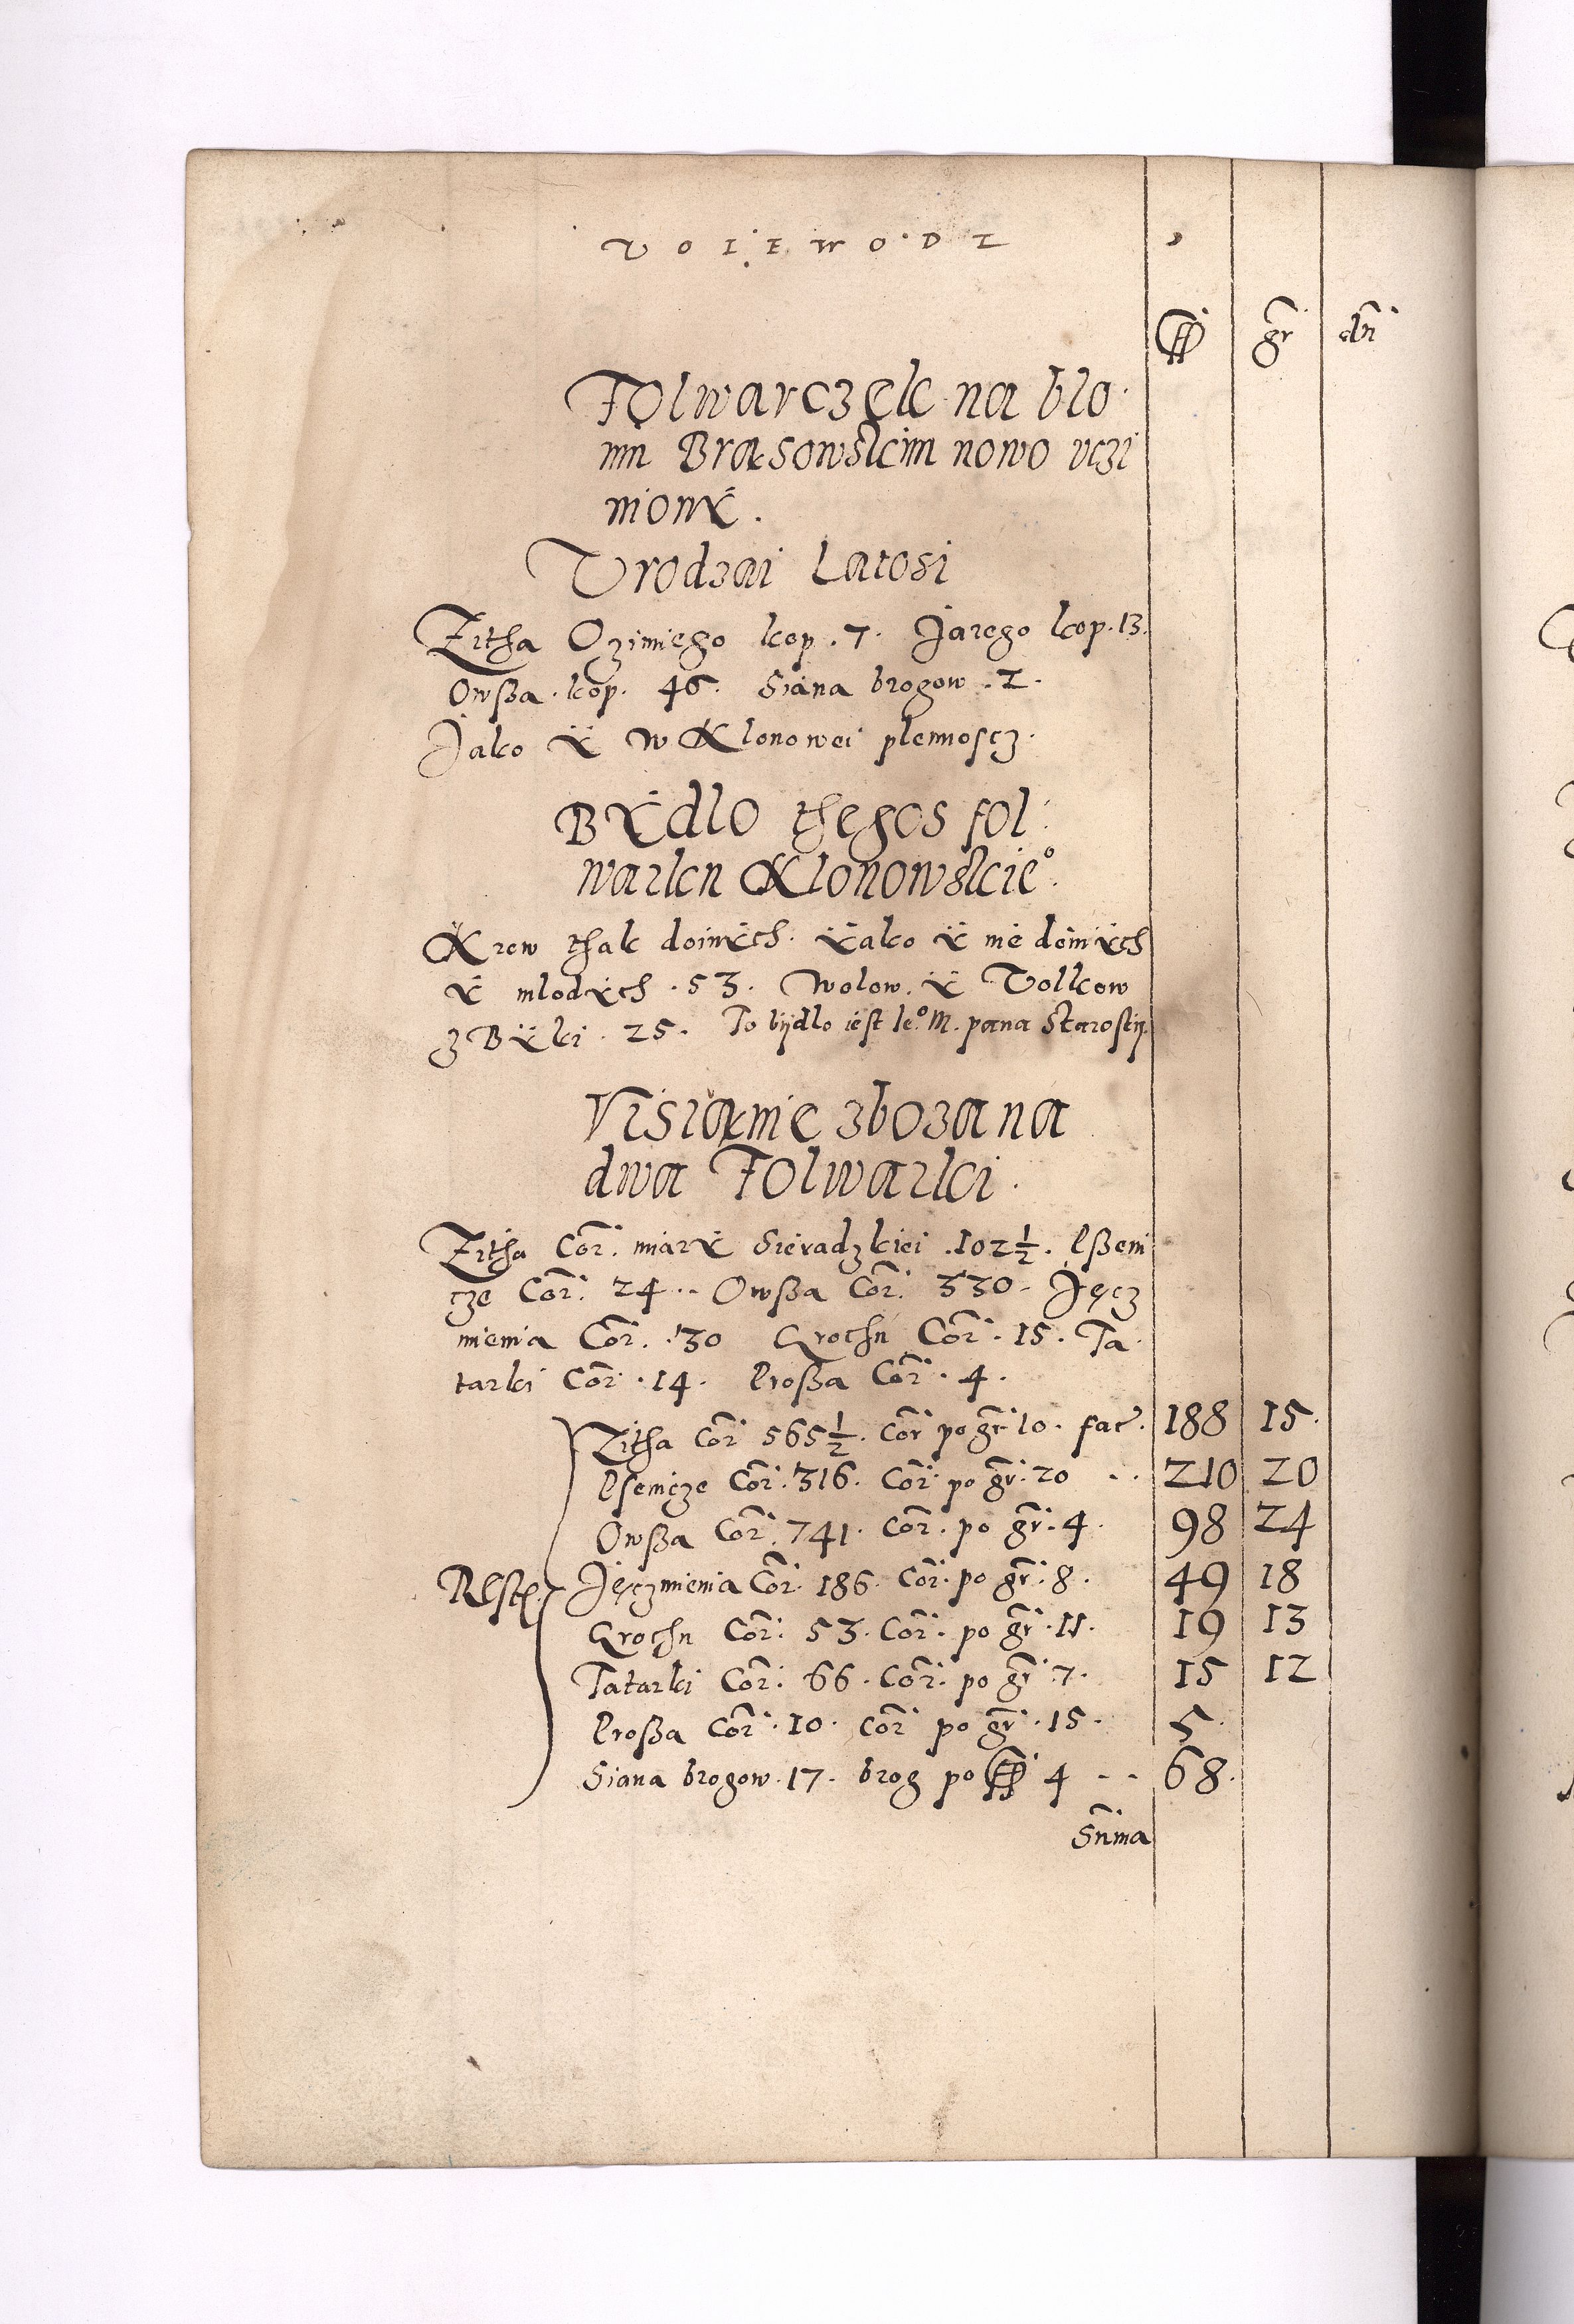 VOIEWODZ
ff gr dn
Folwarczek na blo
niu Brąsowskim nowo vczi
niony.
Vrodzai Latosi
Zitha Ozimiego kop. 7. Jarego kop. 13.
Owßa kop. 46. Siana brogow. 2.
Jako ÿ w Klonowei plennoscz.
Bÿdlo thegos fol
warku Klonowskie°.
Krow thak doinÿch ÿako ÿ nie doinÿch
ÿ mlodÿch. 53. Wolow. ÿ Volkow
z Bÿki. 25. To bijdlo iest Je° M. pana Starostij
Visiąnie zboza na
dwa Folwarki.
Zitha Cor. miarÿ Sieradzkiei. 102 1/2. Pßeni
cze Cor. 24.. Owßa Cor. 330. Jęcz
mienia Cor. 30 Grochu Cor. 15. Ta
tarki Cor. 14. Proßa Cor. 4.
Zitha Cor 565 1/2. Cor po gr. 10. fac. 188 15.
Psenicze Cor. 316. Cor. po gr. 20 .. 210 20
Owßa Cor. 741. Cor. po gr. 4. 98 24
Resth. Jęczmienia Cor. 186. Cor. po gr. 8. 49 18
Grochu Cor. 53. Cor. po gr. 11. 19 13
Tatarki Cor. 66. Cor. po gr. 7. 15 12
Proßa Cor. 10. Cor po gr. 15. 5.
Siana brogow. 17. brog po ff 4 .. 68.
Suma